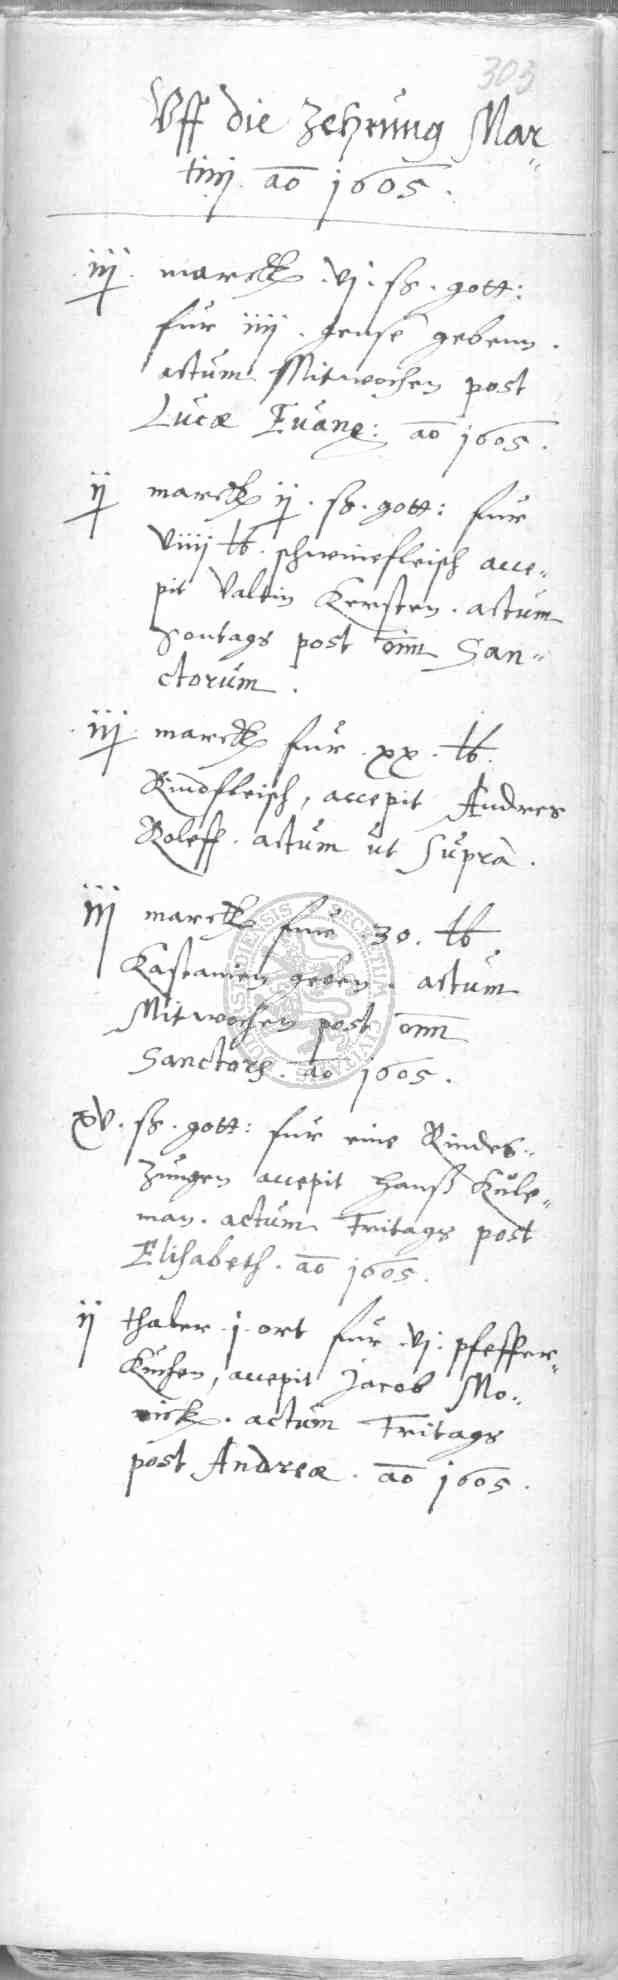 303
Vff die Zehrung Mar„
tinj. aō 1605.
iij marck .vj. ss. gott:
fur iiij. gense gebenn.
actum Mitwochen post
Lucæ Euang: aō 1605.
ij marck ij. ss. gott: fur
viiij ℔. schweinefleisch acce„
pit Valtin Kersten. actum
Sontags post om̄ San„
ctorum.
iij marck fur .xx. ℔.
Rindfleisch, accepit Andres
Roleff. actum ut supra.
iij marck fur 30. ℔
Kastanien geben. actum
Mitwochen post om̄
Sanctorꝝ. aō 1605.
xv. ss. gott: fur eine Rindes„
Zungen accepit Hanß Kule„
man. actum Fritags post
Elisabeth. aō 1605.
ij thaler .j. ort fur .vj. pfeffer„
Kuchen, accepit Jacob Mo„
rick. actum Fritags
post Andreæ. aō 1605.